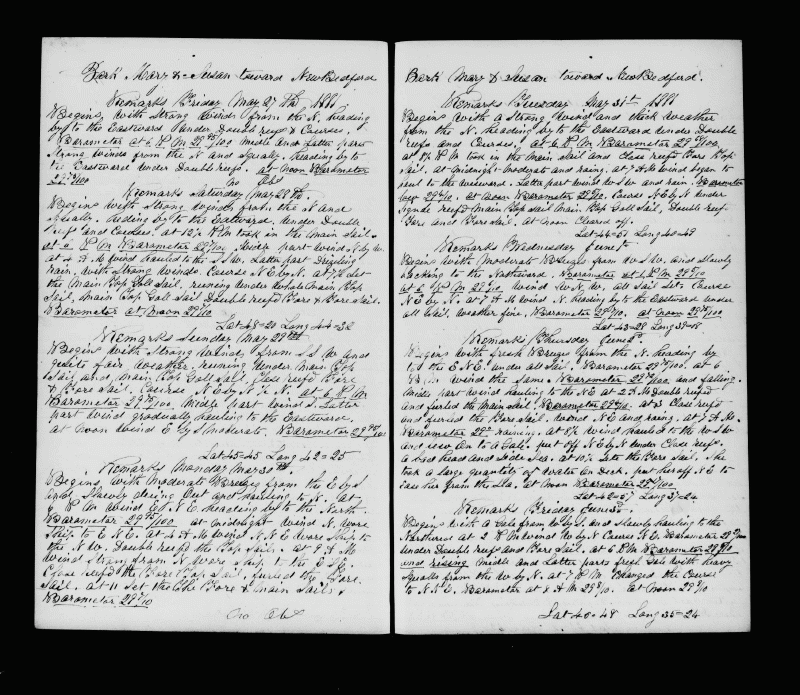 Bark Mary & Susan toward New Bedford
Remarks Friday May 27th 1881
Begins with Strong Winds from the N. heading
by to the Eastward under Double reefs & Courses.
Barometer at 6 P.M. Middle and Latter part
Strong winds from the N. and Squally. heading by to
the Eastward under Double reefs. at Noon Barometer
No Obs
Remarks Saturday May 28th
Begins with Strong winds from the N and
Squally. heading by to the Eastward. under Double
reefs and Courses. at 12 P.M took in the Main Sail.
at 6 P M Barometer Middle part wind N. by W.
at 4 A.M wind hauled to the S.S.W. Latter part Drizzling
rain, with Strong winds. Course N.E by N. at Set
the Main Top Gall Sail, running under whole Main Top
Sail, Main Top Gall Sail Double reefed Fore & Fore Sail.
Barometer at Noon
Lat 43-20 Long 44-32
Remarks Sunday May 29th
Begins with Strong Winds from S.S.W. and
quite fair Weather. running under Main Top
Sail and Main Top Gall Sail. Close reefed Fore
& Fore Sail. Course N.E by N. at 6 P.M
Barometer Latter
part wind gradually hauling to the Eastward.
at Noon wind E by S Moderate. Barometer
Lat 45-45 Long 42-25
Remarks Monday May 30th.
Begins with Moderate Breezes from the E by S
and Slowly dieing Out and hauling to N. at
6 P.M Wind E.N.E. heading by to the North.
Barometer at Midnight Wind N. wore
Ship to E N E. at 4 A M wind N.N.E wore Ship to
the N W. Double reefed the Top Sails. at 9 A M
wind Strong from N wore Ship to the E.
Close reefed the Fore Top Sail, furled the Fore
Sail. at 11 the Fore & Main Sails
Barometer
No Obs
Bark Mary & Susan toward New Bedford.
Remarks Tuesday May 31st 1881
Begins with a Strong Wind and thick weather
from the N. heading by to the Eastward under Double
reefs and Courses, at 6 P.M Barometer
at P M took in the Main Sail and Close reefed Fore Top
Sail. at Midnight Moderate and raining. at 7 A.M wind began to
to the Westward. Latter part wind W.S.W and rain. Barometer
at Noon Barometer Course N.E by N under
Single reefed Main Top Sail Main Top Gall Sail, Double reef
Fore and Fore Sail. at Noon Cleared off.
Lat 44-51 Long 40-49
Remarks Wednesday June 1st
Begins with Moderate Breezes from W.S.W. and Slowly
backing to the Northward. Barometer at 6 P.M
at 6 P.M wind W.N.W. all Sail Set. Course
N.E by N. at 7 A Mo wind N. heading by to the Eastward under
all Sail, Weather fine. Barometer at Noon
Lat 43-28 Long 39-18
Remarks Thursday June 2d.
Begins with fresh Breezes from the N. heading by
to the E.N.E. under all Sail. Barometer at 6
P.M wind the Same. Barometer and falling.
Middle part wind hauling to the N.E at 2 A.M Double reefed
and furled the Main Sail. Barometer at 5 Close reefed
and furled the Fore Sail. wind N.E and raining. at 7 A Mo
Barometer raining. at wind hauled to the W.S.W
and On to a Gale. put off N.E by N under Close reefs.
a bad head and Side Sea. at Set the Fore Sail. She
took a large quantity of Water On Deck. put her off N.E to
ease her from the Sea. at Noon Barometer
Lat 42-57 Long 37-24
Remarks Friday June 3d.
Begins with a Gale from W by S. and Slowly hauling to the
Northwest at 2 P.M wind W by N Course N.E. Barometer
under Double reefs and Fore Sail. at 6 P.M Barometer
and rising. Middle and Latter parts fresh Gale with heavy
Squalls from the W by N. at 7 P M Changed the Course
to N.N.E. Barometer at 8 A M at Noon
Lat 40-48 Long 35-24